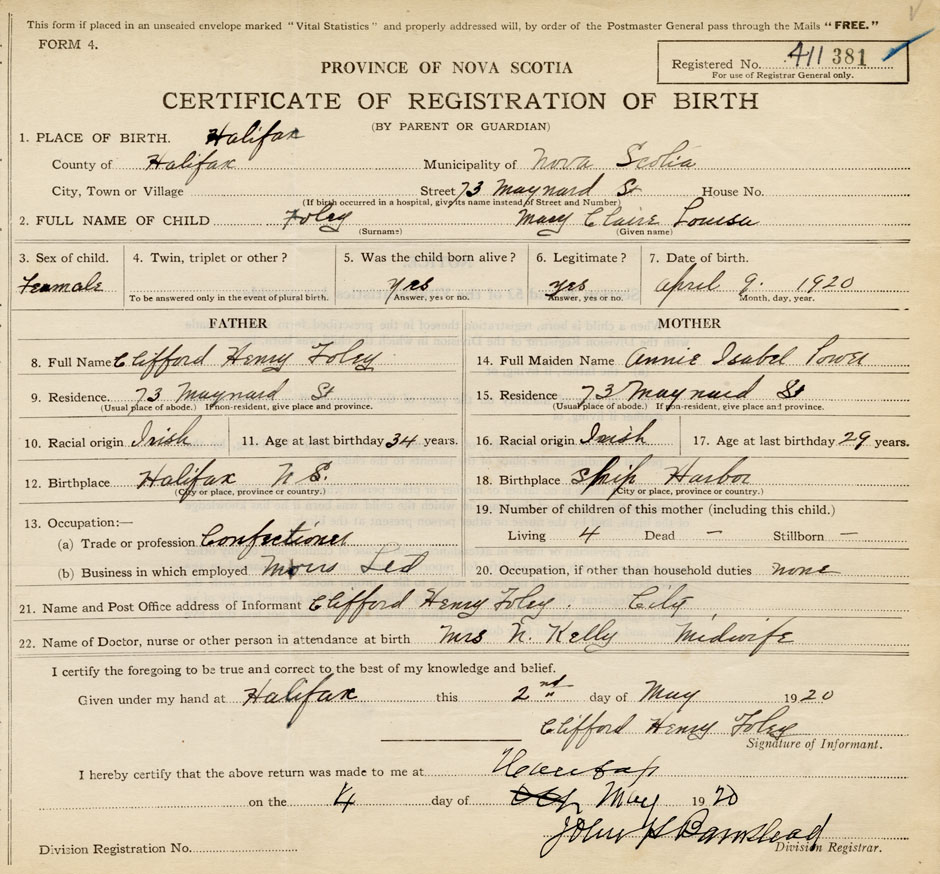 This form if placed in an unsealed envelope marked "Vital Statistics" and properly addressed will, by order of the Postmaster General pass through the Mails "FREE."
FORM 4.
Registered No. 411 381
For use of Registrar General only.
PROVINCE OF NOVA SCOTIA
CERTIFICATE OF REGISTRATION OF BIRTH
(BY PARENT OR GUARDIAN)
1. PLACE OF BIRTH. Halifax
County of Halifax Municipality of Nova Scotia
City, Town or Village Street 73 Maynard St House No.
(If birth occurred in a hospital, give its name instead of Street and Number)
2. FULL NAME OF CHILD Foley Mary Claire Louisa
(Surname) (Given name)
3. Sex of child. 4. Twin, triplet or other? 5. Was the child born alive? 6. Legitimate? 7. Date of birth.
Feamale yes yes April 9. 1920
To be answered only in the event of plural birth. Answer, yes or no. Answer, yes or no. Month, day, year.
FATHER MOTHER
8. Full Name Clifford Henry Foley 14. Full Maiden Name Annie Isabel Power
9. Residence. 73 Maynard St 15. Residence 73 Maynard St
(Usual place of abode.) If non-resident, give place and province. (Usual place of abode.) If non-resident, give place and province.
10. Racial origin Irish 11. Age at last birthday 34 years. 16. Racial origin Irish 17. Age at last birthday 29 years.
12. Birthplace Halifax N S. 18. Birthplace Ship Harbor
(City or place, province or country.) (City or place, province or country.)
13. Occupation:— 19. Number of children of this mother (including this child.)
(a) Trade or profession Confectioner Living 4 Dead — Stillborn —
(b) Business in which employed Moirs Ltd 20. Occupation, if other than household duties none
21. Name and Post Office address of Informant Clifford Henry Foley. City
22. Name of Doctor, nurse or other person in attendance at birth Mrs N. Kelly Midwife
I certify the foregoing to be true and correct to the best of my knowledge and belief.
Given under my hand at Halifax this 2nd day of May 1920
Clifford Henry Foley
Signature of Informant.
I hereby certify that the above return was made to me at Halifax
on the 4 day of May 1920
John H
Division Registration No. Division Registrar.